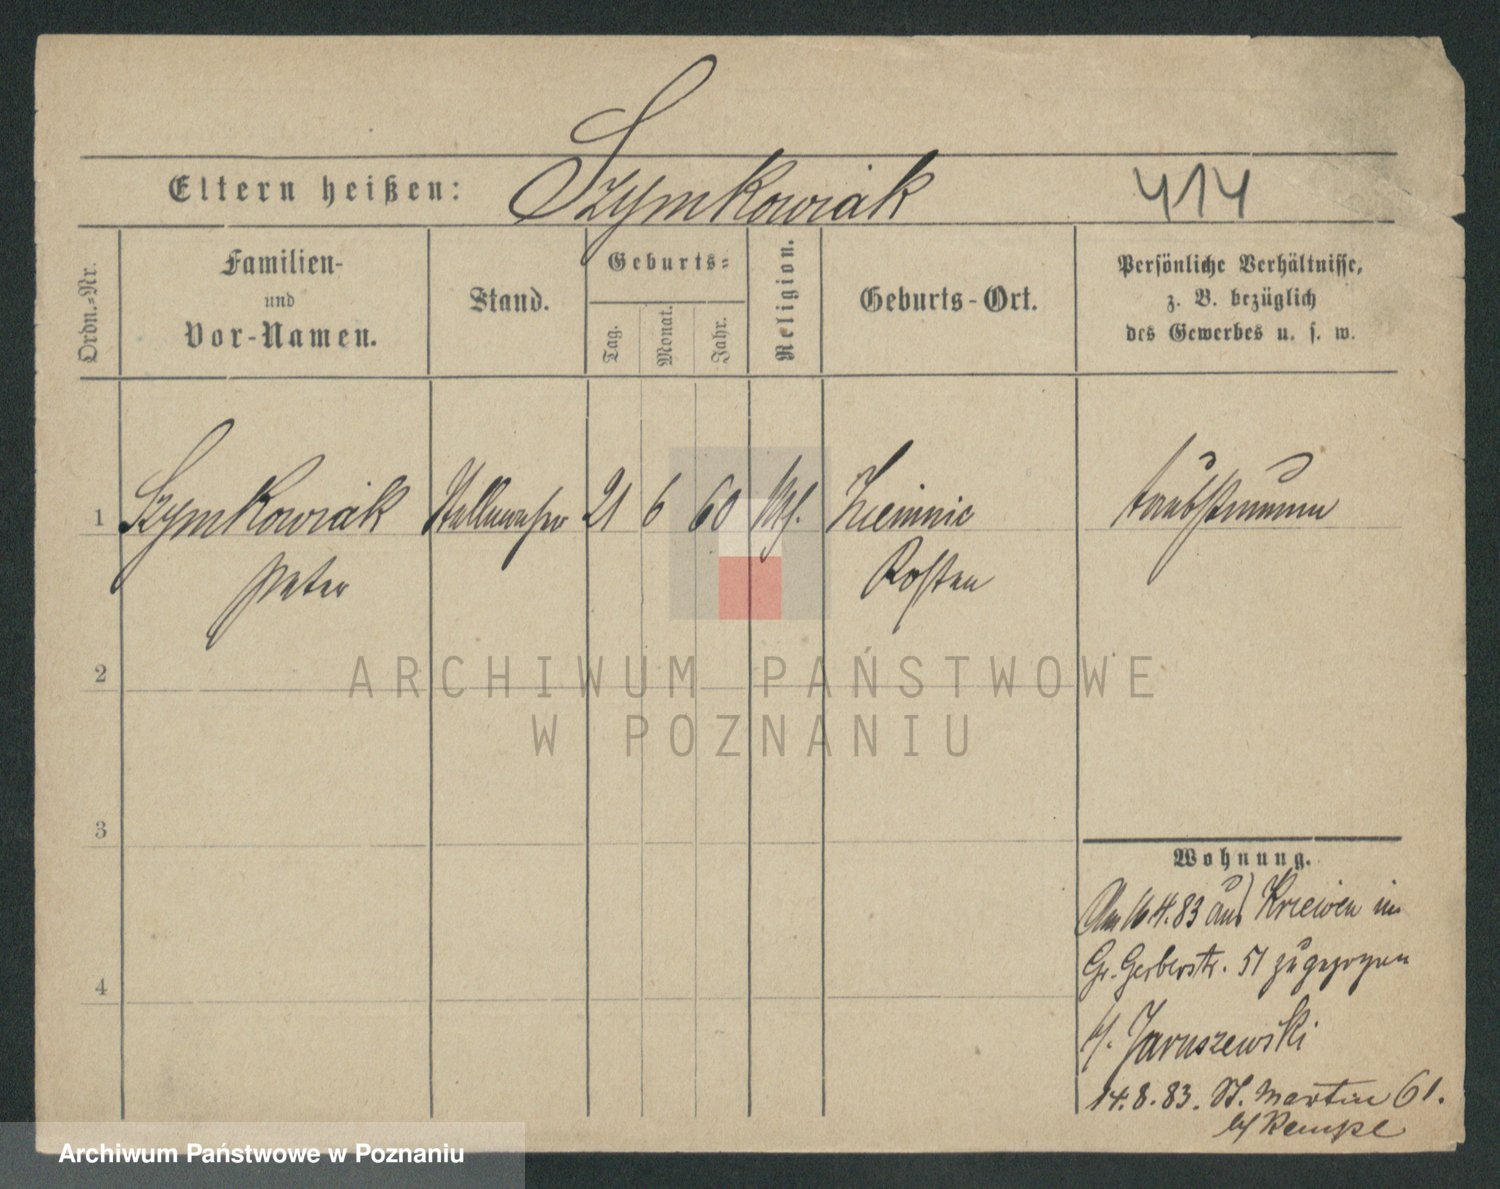 Eltern heißen: Szymkowiak 414
Ordn.-Nr.
Familien-
und
Vor-Namen.
Stand.
Geburts-
Tag.
Monat.
Jahr.
Religion.
Geburts-Ort.
Persönliche Verhältnisse,
z. B. bezüglich
des Gewerbes u. s. w.
1 Szymkowiak Stellmacher 21 6 60 kth. Ziemnic taubstumm
Peter Kosten
2
ARCHIWUM PAŃSTWOWE
W POZNANIU
3
Wohnung.
Am 16.4.83 aus Kriewen im
4 Gr. Gerberstr. 51 zugezogen
b/. Jaruszewski
14.8.83. St. Martin 61.
b/ Rempe
Archiwum Państwowe w Poznaniu